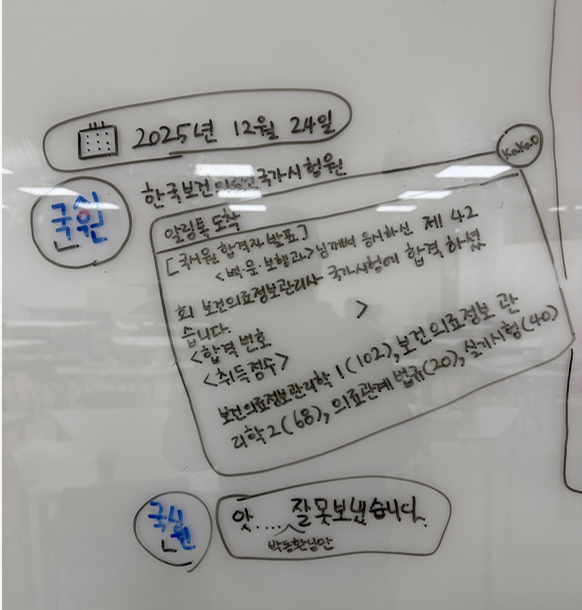 2025년 12월 24일
국시원
한국보건의료인국가시험원
KaKaO
알림톡 도착
[국시원 합격자 발표]
<백문·보행과>님께서 응시하신 제 42
회 보건의료정보관리사 국가시험에 합격 하셨
습니다.
<합격 번호 >
<취득점수>
보건의료정보관리학 1(102), 보건의료정보 관
리학2(68), 의료관계 법규(20), 실기시험(40)
국시원
앗.... 잘못보냈습니다.
박동환님만